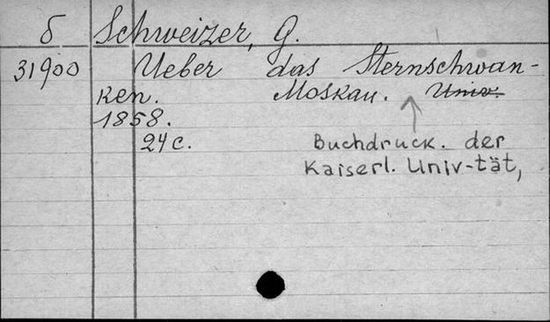 б Schweizer, G.
31900 Ueber das Sternschwan-
ken. Moskau. Univ.
1858.
24 c.
Buchdruck. der
Kaiserl. Univ-tät,